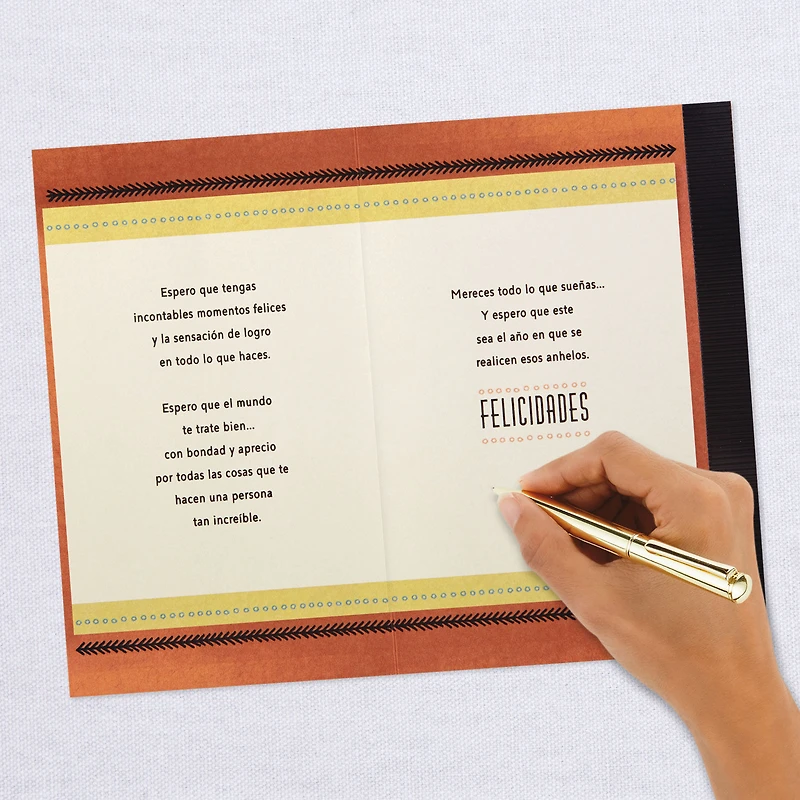 Espero que tengas
incontables momentos felices
y la sensación de logro
en todo lo que haces.
Espero que el mundo
te trate bien...
con bondad y aprecio
por todas las cosas que te
hacen una persona
tan increíble.
Mereces todo lo que sueñas...
Y espero que este
sea el año en que se
realicen esos anhelos.
FELICIDADES